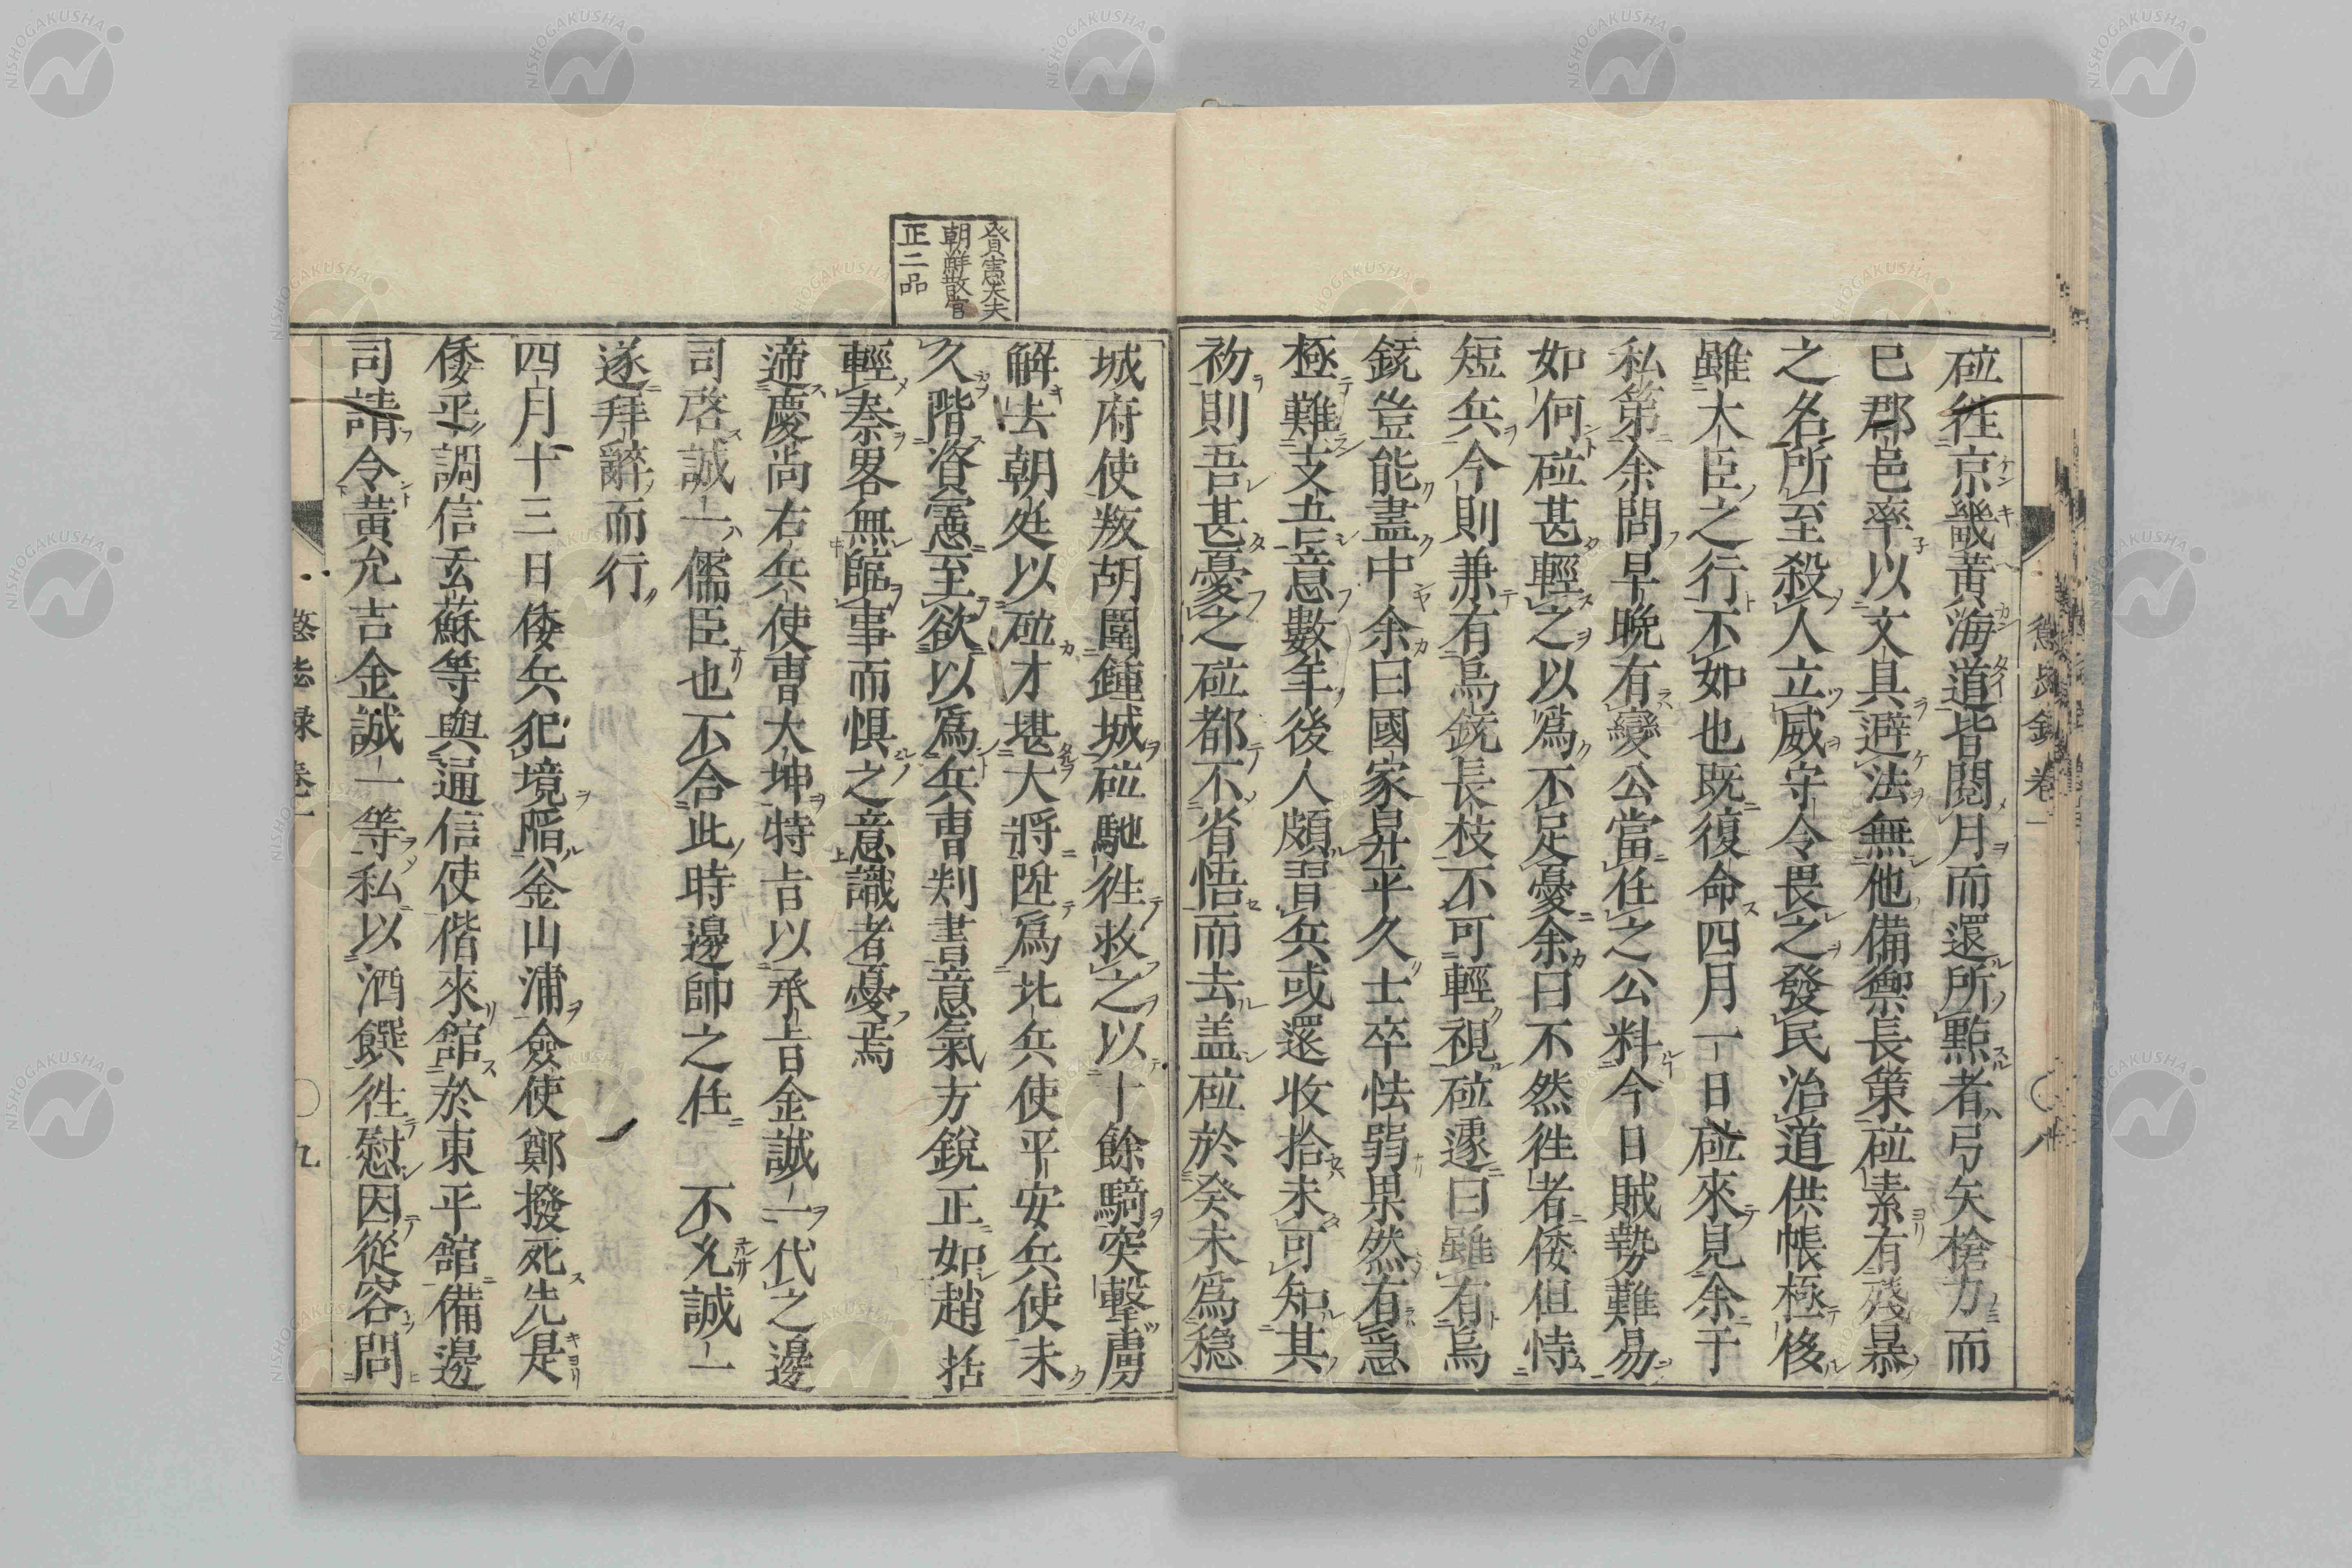 砬徃京畿黃海道皆閱月而還所㸃者弓矢槍刀而
已郡邑率以文具避法無他備禦長策砬素有殘暴
之名所至殺人立威守令畏之發民治道供帳極侈
雖大臣之行不如也既復命四月一日砬來見余于
私第余問早晩有變公當任之公料今日賊勢難易
如何砬甚輕之以爲不足憂余曰不然徃者倭但恃
短兵今則兼有鳥銃長技不可輕視砬遽曰雖有鳥
銃豈能盡中余曰國家昇平久士卒怯弱果然有急
極難支吾意數年後人頗習兵或還收拾未可知其
初則吾甚憂之砬都不省悟而去盖砬於癸未爲穏
城府使叛胡圍鍾城砬馳徃救之以十餘騎突擊虜
解去朝廷以砬才堪大將陞爲北兵使平安兵使未
久階資憲至欲以爲兵曹判書意氣方銳正如趙括
輕秦畧無臨事而惧之意識者憂焉
遞慶尚右兵使曹大坤特旨以承旨金誠一代之邊
司啓誠一儒臣也不合此時邊帥之任不允誠一
遂拜辭而行
四月十三日倭兵犯境陷釜山浦僉使鄭撥死先是
倭平調信玄蘇等與通信使偕來館於東平館備邊
司請令黃允吉金誠一等私以酒饌徃慰因從容問
資憲大夫
朝鮮散官
正二品
懲毖録卷一
懲毖録卷一
九
NISHOGAKUSHA